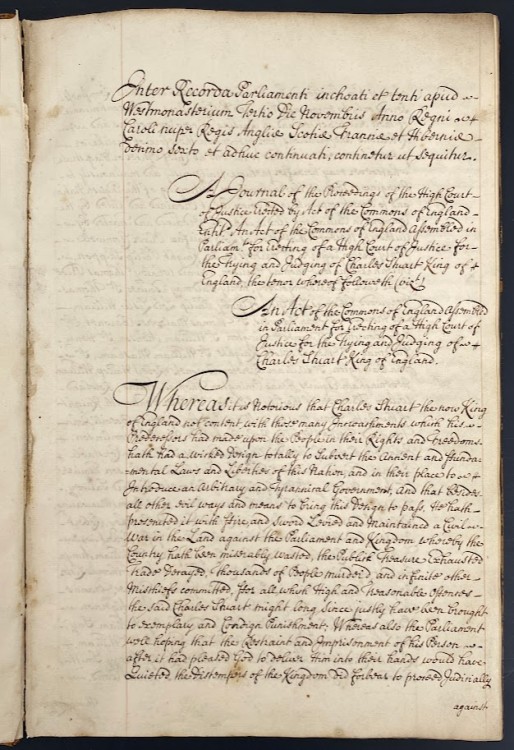 Inter Recorda Parliamenti inchoati et tenti apud
Westmonasterium Tertio Die Novembris Anno Regni
Caroli nuper Regis Anglie Scotie Francie et Hibernie
Decimo Sexto et adhuc continuati, continetur ut sequitur.
A Journal of the Proceedings of the High Court
of Justice Erected by Act of the Commons of England
Entit. An Act of the Commons of England Assembled in
Parliamt. for Erecting of a High Court of Justice for
the Trying and Judging of Charles Stuart King of
England, the tenor whereof followeth (vizt)
An Act of the Commons of England Assembled
in Parliament for Erecting of a High Court of
Justice for the Trying and Judging of
Charles Stuart King of England.
Whereas it is Notorious that Charles Stuart the now King
of England not content with those many Encroachments which his
Predecessors had made upon the People in their Rights and Freedoms
hath had a Wicked Design totally to Subvert the Ancient and Funda-
-mental Laws and Liberties of this Nation, and in their place to
Introduce an Arbitrary and Tyrannical Government, And that besides
all other evil ways and means to bring this Design to pass, He hath
prosecuted it with Fire and Sword Levied and Maintained a Civil
War in the Land against the Parliament and Kingdom whereby the
Country hath been miserably wasted, the Publick Treasure Exhausted
Trade Decayed, Thousands of People murder'd, and infinite other
Mischiefs committed, For all which High and Treasonable Offences
the said Charles Stuart might long since justly have been brought
to exemplary and Condign Punishment; Whereas also the Parliament
well hoping that the Restraint and Imprisonment of his Person
after it had pleased God to deliver Him into their hands would have
Quieted the distempers of the Kingdom did forbear to proceed Judicially
against